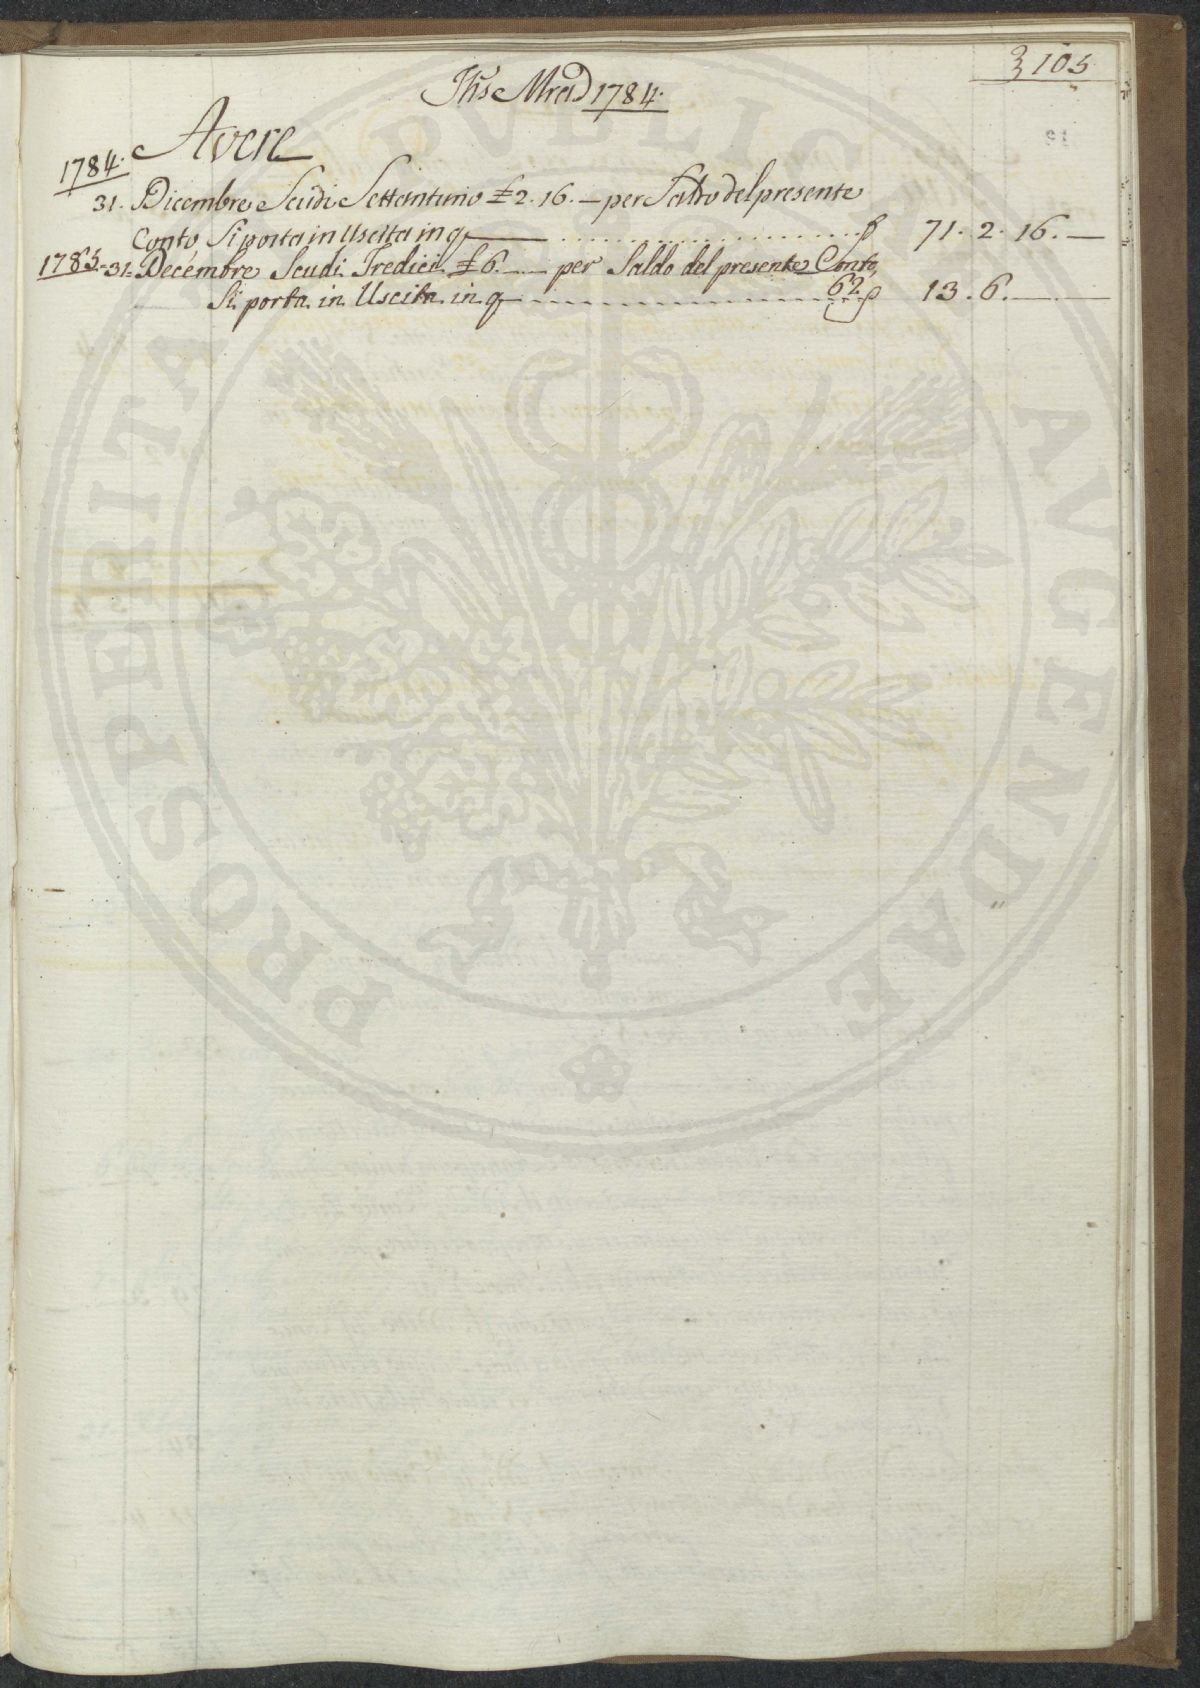 105
Jhs Mrad 1784.
Avere
1784.
31. Dicembre Scudi Settantuno £ 2. 16. — per Saldo del presente
Conto Si porta in Uscita in q ................ f 71. 2. 16. —
1785. 31. Decembre Scudi Tredici £ 6. — per Saldo del presente Conto,
Si porta in Uscita in q ................ 62 f 13. 6. —
PROSPERITATI PVBLICAE AVGENDAE